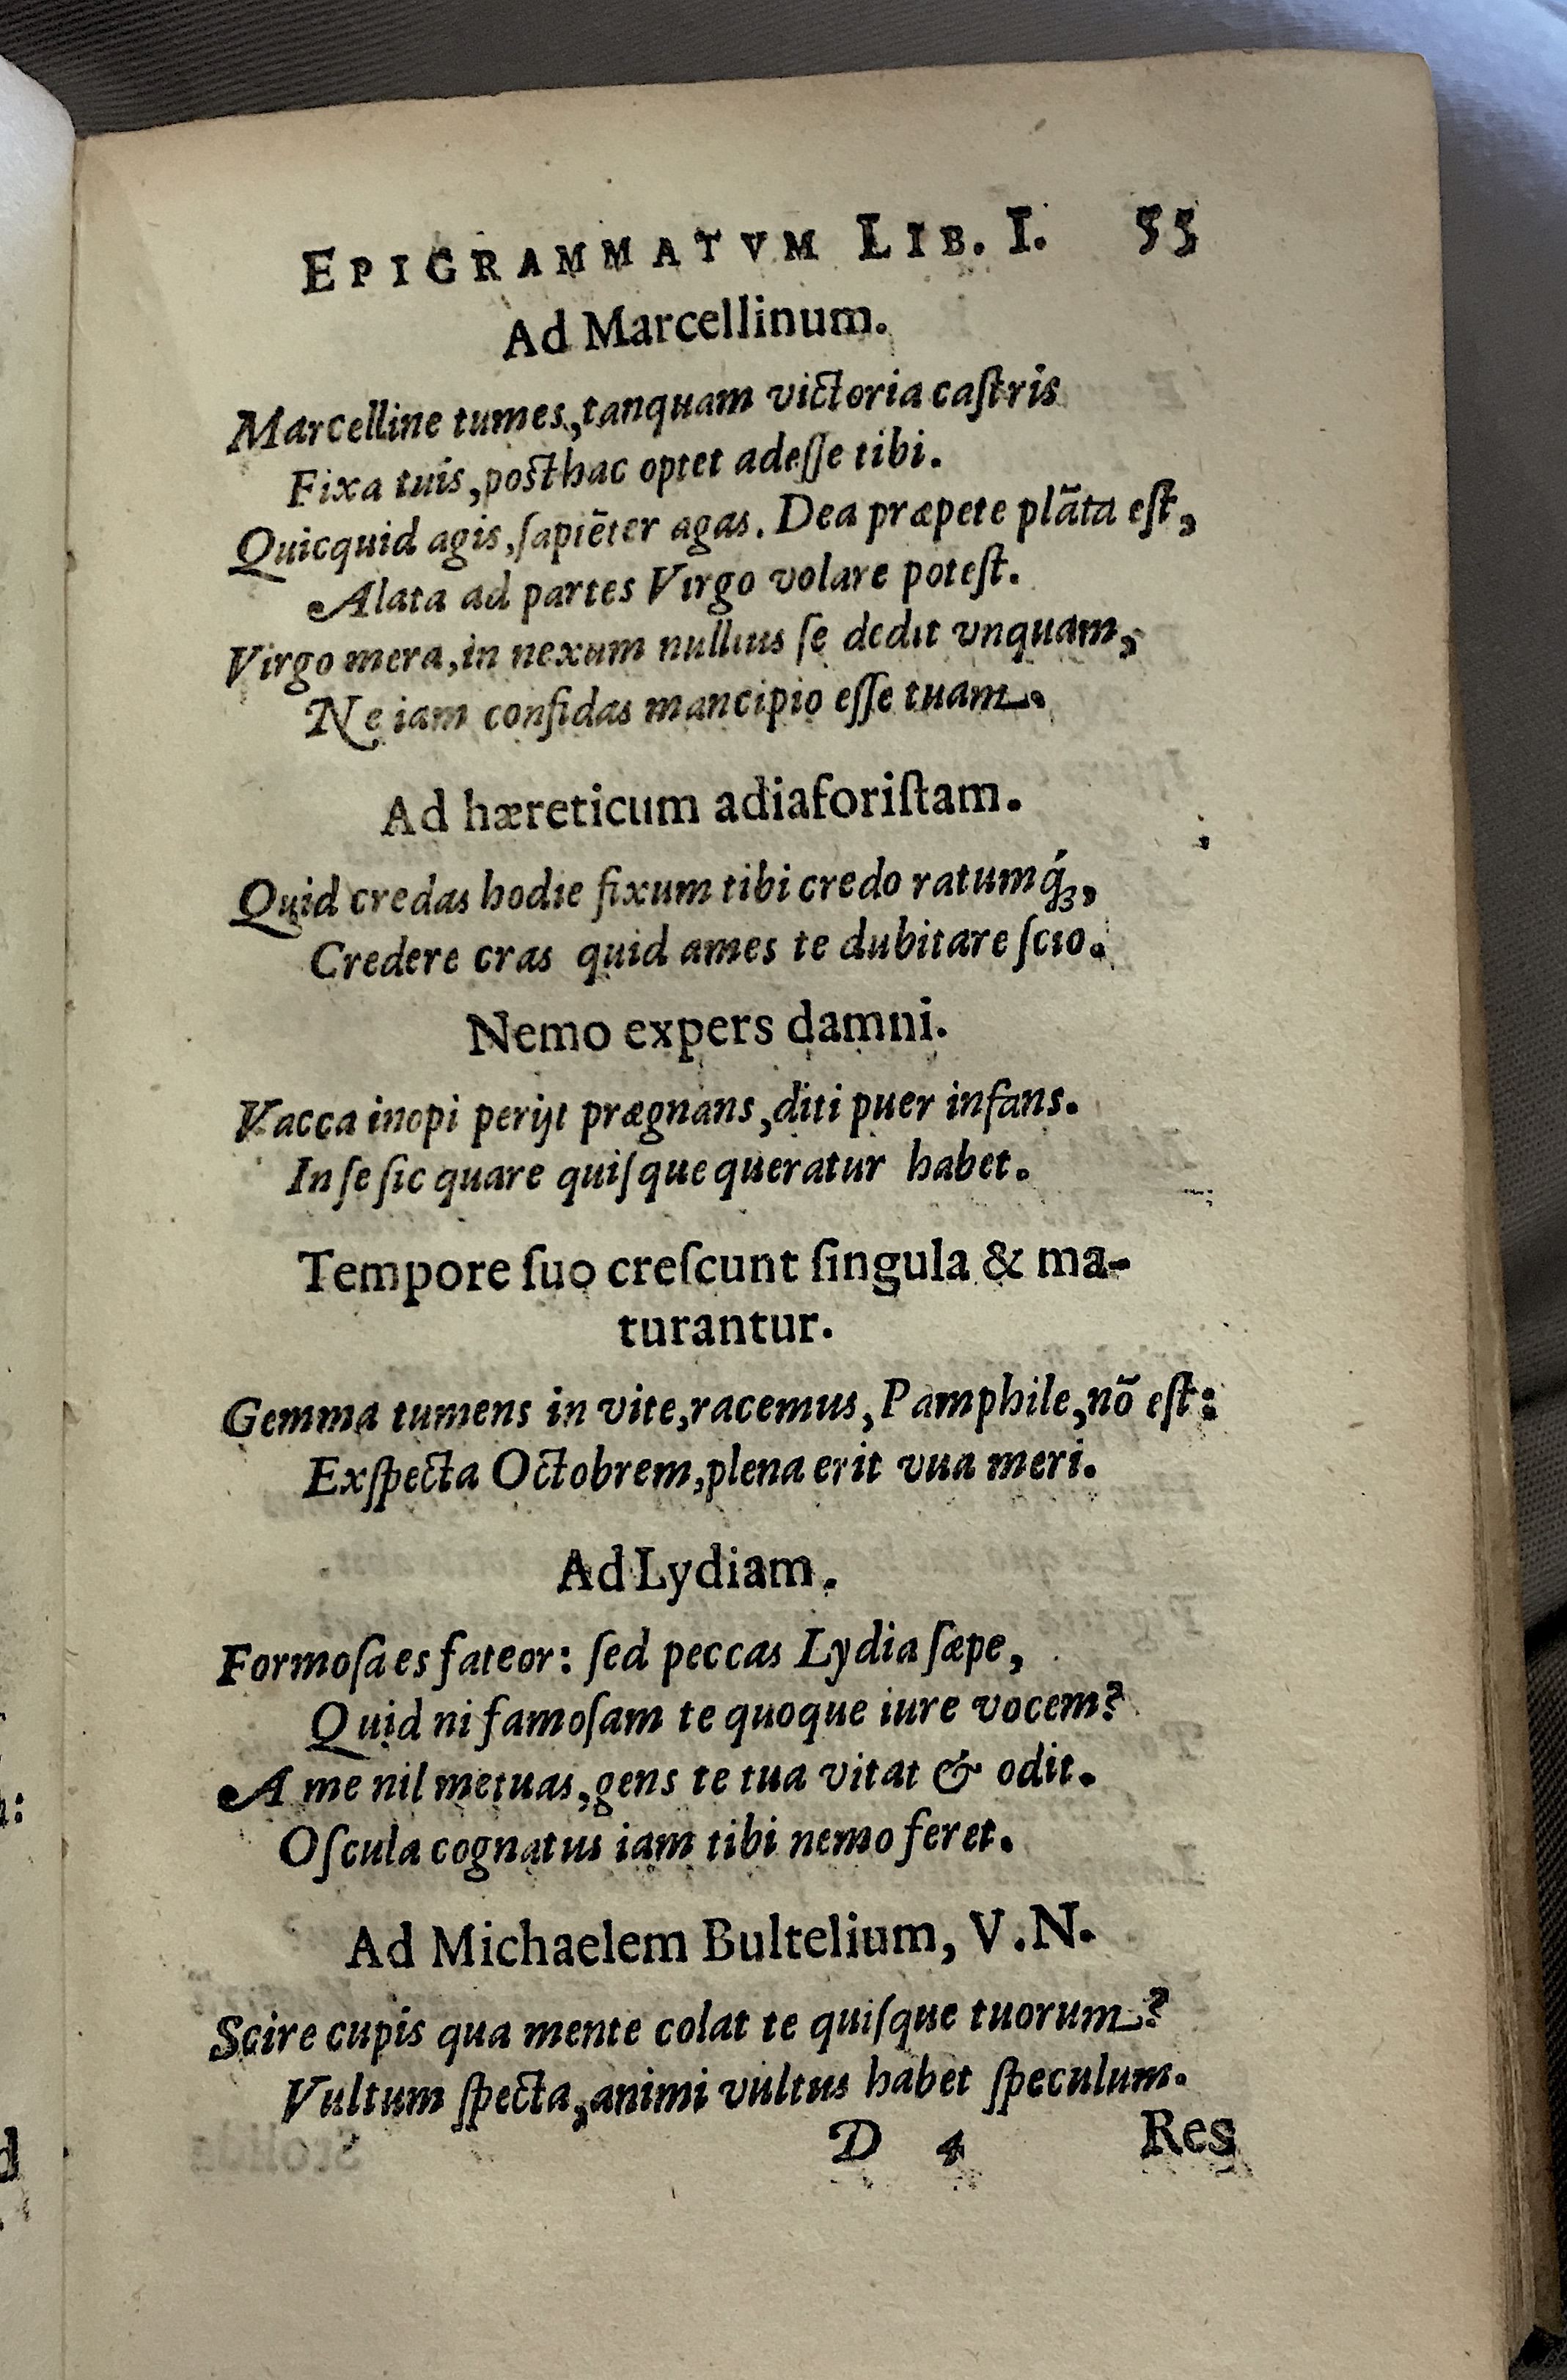 EPIGRAMMATVM LIB. I. 55
Ad Marcellinum.
Marcelline tumes, tanquam victoria caſtris
Fixa tuis, poſthac optet adeſſe tibi.
Quicquid agis, ſapiēter agas. Dea præpete plāta eſt,
Alata ad partes Virgo volare poteſt.
Virgo mera, in nexum nullius ſe dedit vnquam,
Ne iam confidas mancipio eſſe tuam.
Ad hæreticum adiaforiſtam.
Quid credas hodie fixum tibi credo ratumq́ꝫ,
Credere cras quid ames te dubitare ſcio.
Nemo expers damni.
Vacca inopi perijt prægnans, diti puer infans.
In ſe ſic quare quiſque queratur habet.
Tempore ſuo creſcunt ſingula & ma-
turantur.
Gemma tumens in vite, racemus, Pamphile, nō eſt:
Exſpecta Octobrem, plena erit vua meri.
Ad Lydiam.
Formoſa es fateor: ſed peccas Lydia ſæpe,
Quid ni famoſam te quoque iure vocem?
A me nil metuas, gens te tua vitat & odit.
Oſcula cognatus iam tibi nemo feret.
Ad Michaelem Bultelium, V.N.
Scire cupis qua mente colat te quiſque tuorum?
Vultum ſpecta, animi vultus habet ſpeculum.
D 4 Res